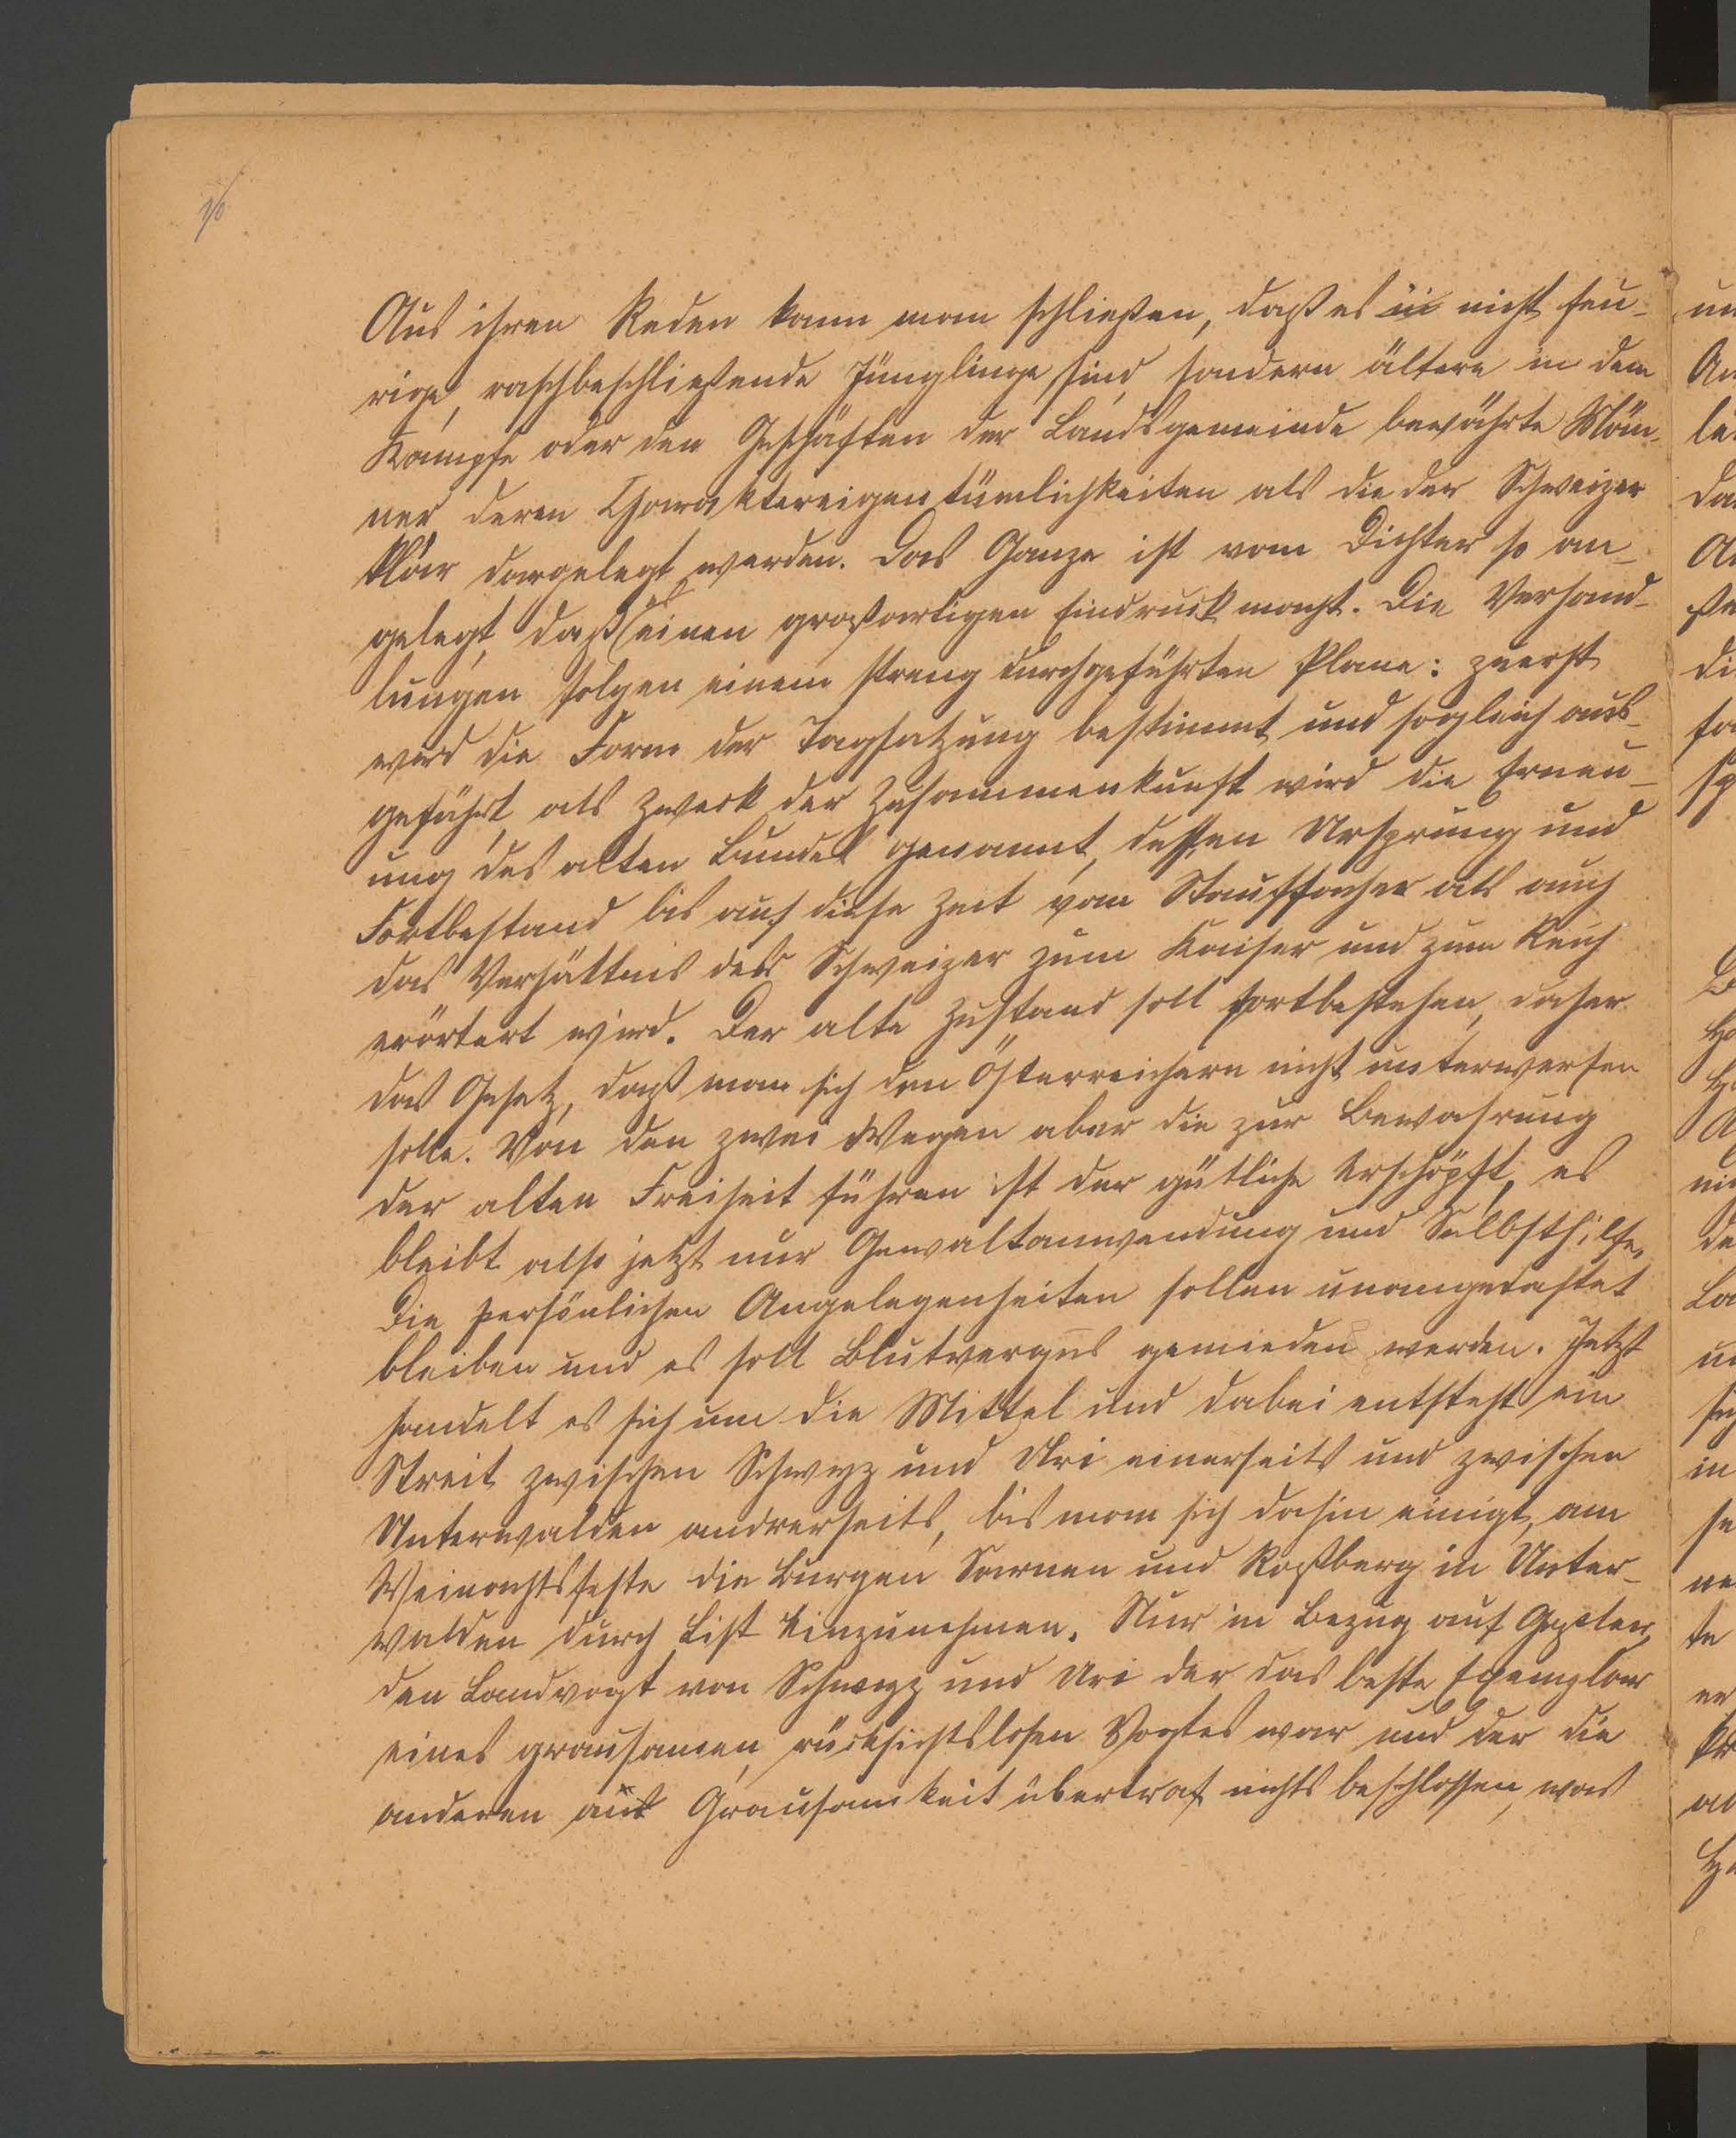 Aus ihren Reden kann man schließen, daß es nicht feu-
rige, raschbeschließende Jünglinge sind, sondern ältere in dem
Kampfe oder den Geschäften der Landsgemeinde bewährte Män-
ner deren Charaktereigentümlichkeiten als die der Schweizer
klar dargelegt werden. Das Ganze ist vom Dichter so an-
gelegt, daß es einen großartigen Eindruck macht. Die Verhand-
lungen folgen einem streng durchgeführten Plane: zuerst
wird die Form der Tagsatzung bestimmt und sogleich aus-
geführt, als Zweck der Zusammenkunft wird die Erneu-
ung des alten Bundes genannt, dessen Ursprung und
Fortbestand bis auf diese Zeit vom Stauffacher als auch
das Verhältnis der Schweizer zum Kaiser und zum Reich
erörtert wird. Der alte Zustand soll fortbestehen, daher
das Gesetz, daß man sich den Österreichern nicht unterwerfen
solle. Von den zwei Wegen aber die zur Bewahrung
der alten Freiheit führen ist der gütliche erschöpft, es
bleibt also jetzt nur Gewaltanwendung und Selbsthilfe.
Die persönlichen Angelegenheiten sollen unangetastet
bleiben und es soll Blutvergus gemieden werden. Jetzt
handelt es sich um die Mittel und dabei entsteht ein
Streit zwischen Schwyz und Uri einerseits und zwischen
Unterwalden andrerseits, bis man sich dahin einigt, am
Weinachtsfeste die Burgen Sarnen und Roßberg in Unter-
walden durch List einzunehmen. Nur in Bezug auf Geßler,
den Landvogt von Schwyz und Uri der das beste Exemplar
eines grausamen, rücksichtslosen Vogtes war und der die
anderen an Grausamkeit übertraf nichts beschlossen, was